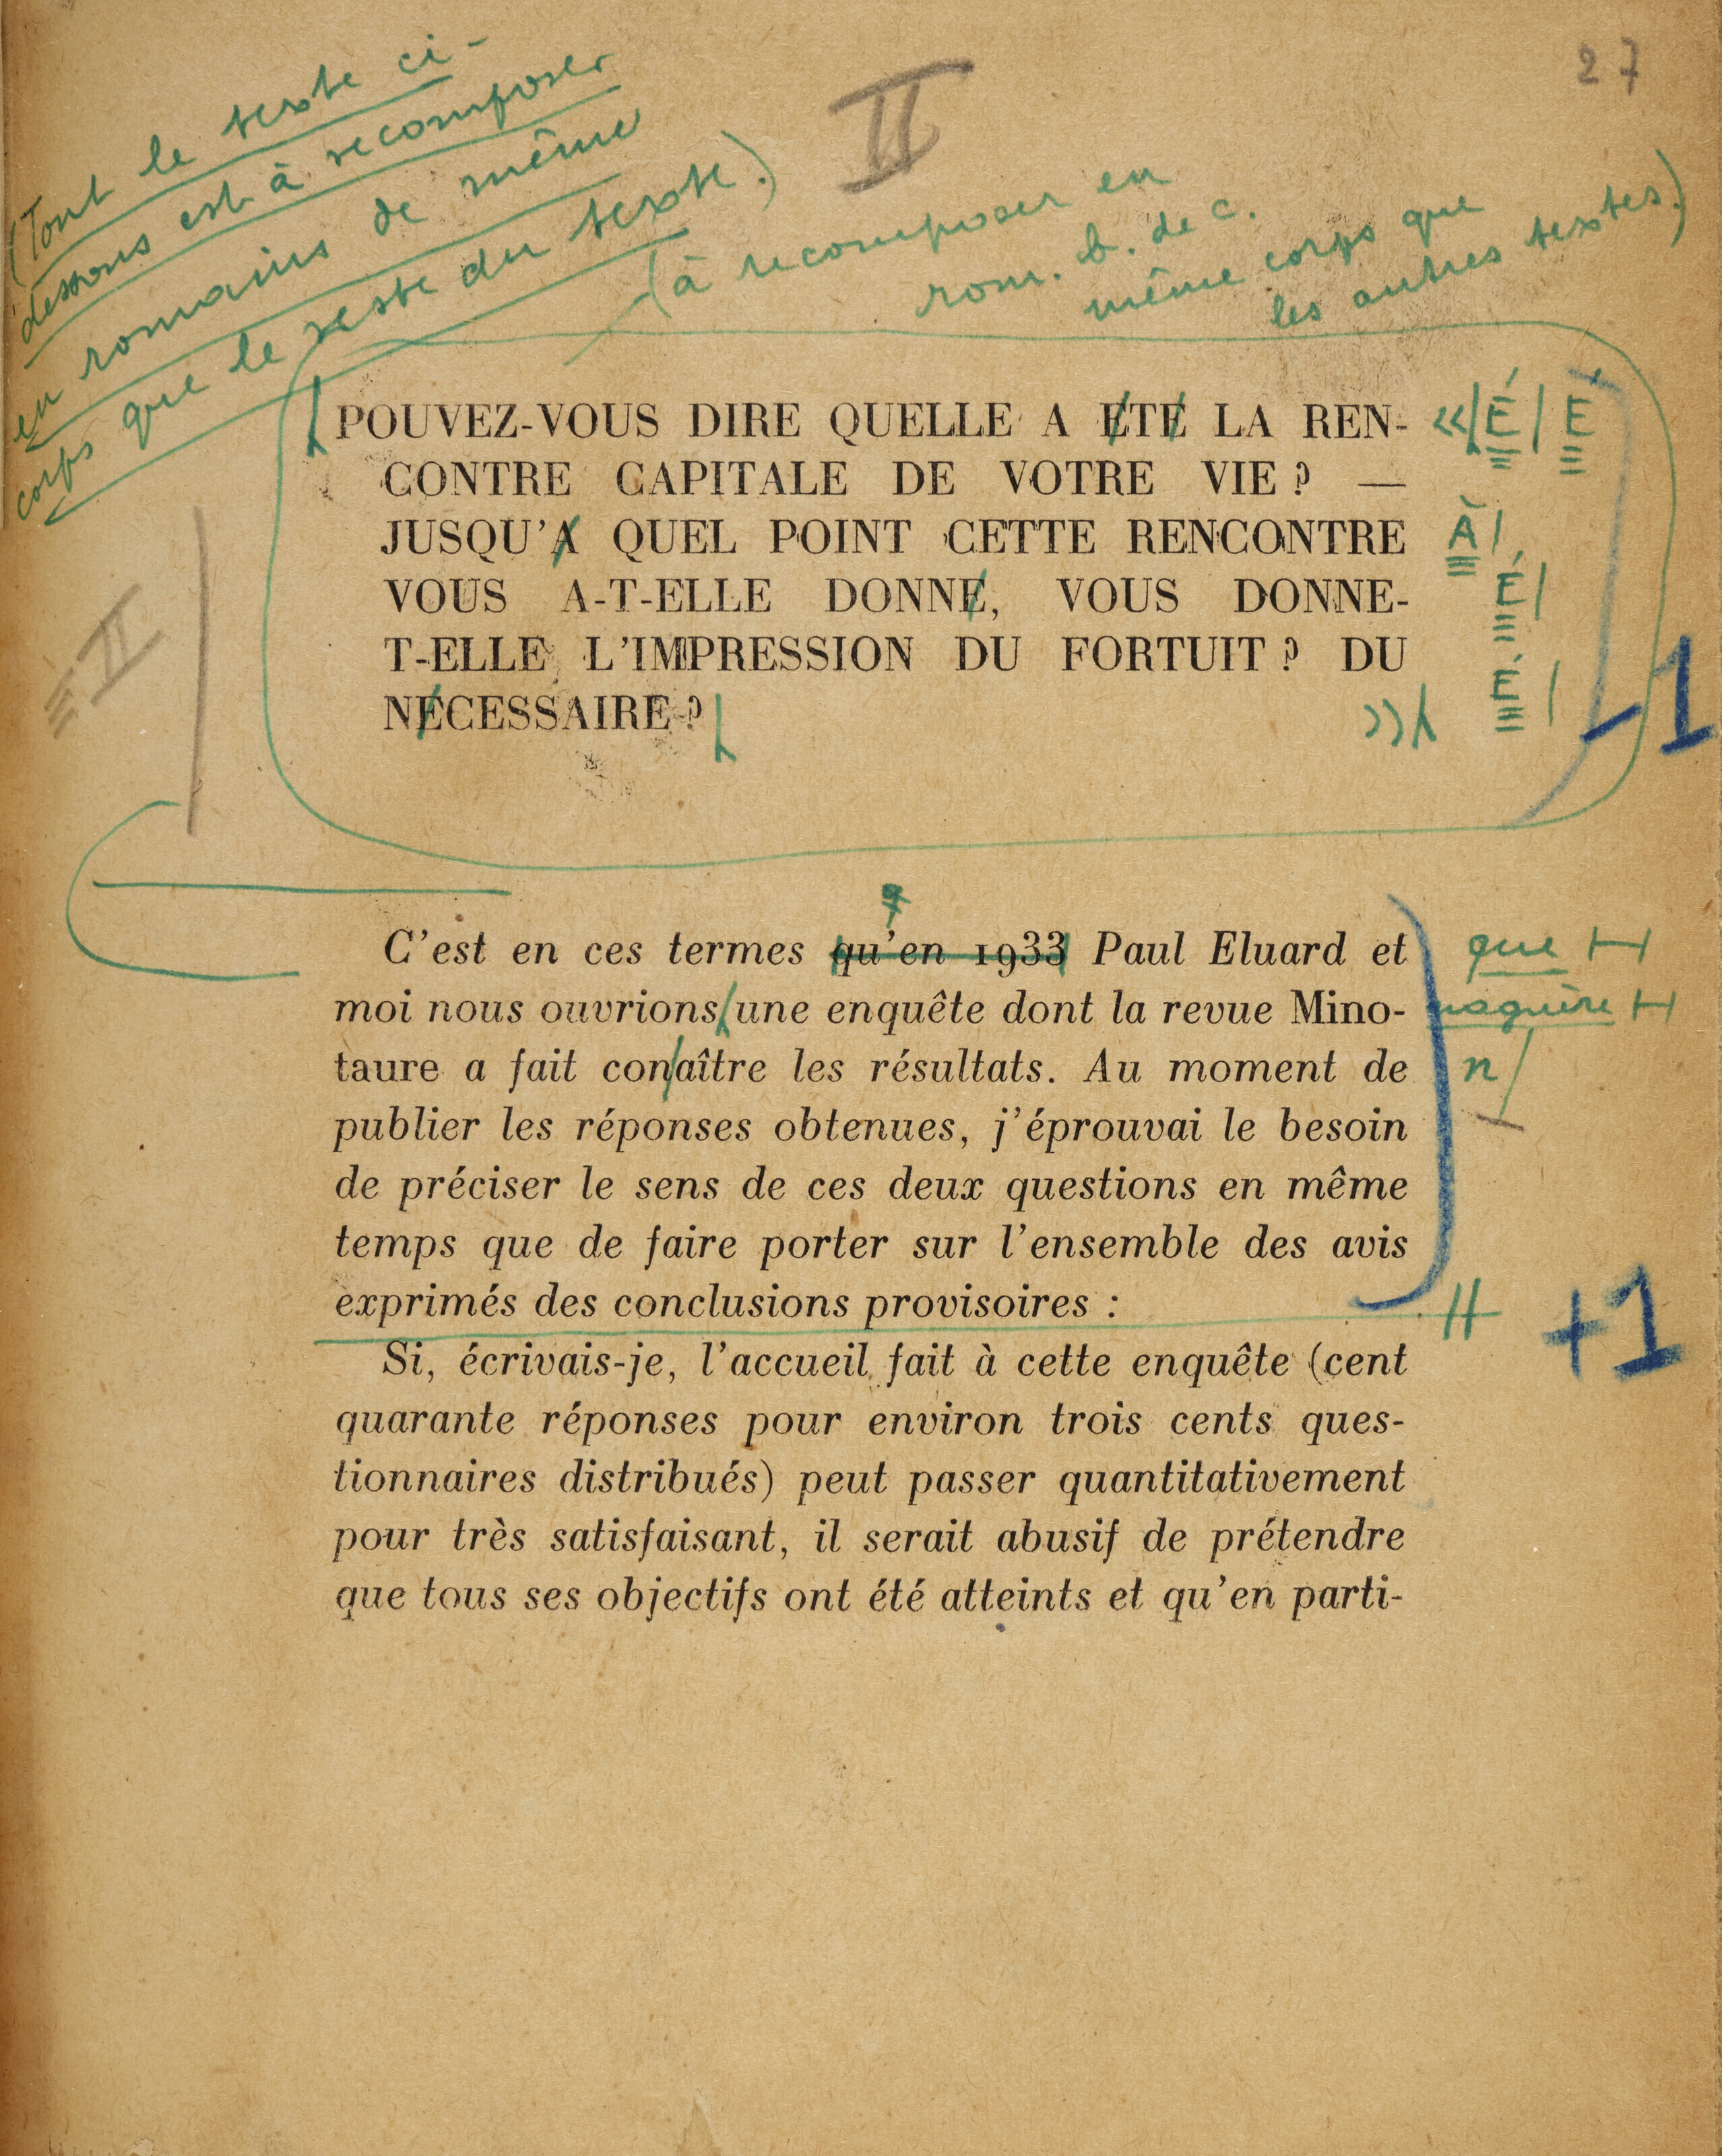 27
II
(Tout le texte ci-
dessous est à recomposer
en romains de même
corps que le reste du texte.)
(à recomposer en
rom. b. de c.
même corps que
les autres textes.)
POUVEZ-VOUS DIRE QUELLE A ETE LA REN-
«/ É/ É
CONTRE CAPITALE DE VOTRE VIE ? —
JUSQU'A QUEL POINT CETTE RENCONTRE
À/
VOUS A-T-ELLE DONNE, VOUS DONNE-
É/
T-ELLE L'IMPRESSION DU FORTUIT ? DU
É/
NECESSAIRE ?
»
-1
II
C'est en ces termes qu'en 1933 Paul Eluard et
que
moi nous ouvrions une enquête dont la revue Mino-
naguère
taure a fait conaître les résultats. Au moment de
n/
publier les réponses obtenues, j'éprouvai le besoin
de préciser le sens de ces deux questions en même
temps que de faire porter sur l'ensemble des avis
exprimés des conclusions provisoires :
+1
Si, écrivais-je, l'accueil fait à cette enquête (cent
quarante réponses pour environ trois cents ques-
tionnaires distribués) peut passer quantitativement
pour très satisfaisant, il serait abusif de prétendre
que tous ses objectifs ont été atteints et qu'en parti-